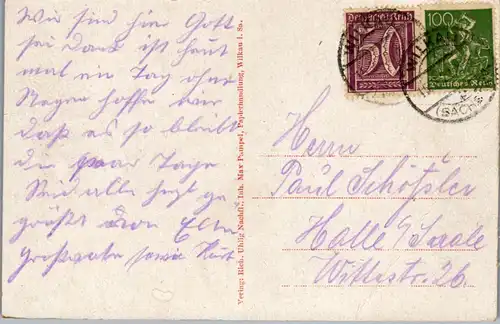 Wir sind hier Gott
sei Dank ist heut
mal ein Tag ohne
Regen hoffe wir
daß es so bleibt
die paar Tage
Seid alle herzl ge
grüßt von Elm
Großvater sowie Kurt
Verlag: Rich. Uhlig Nachflr., Inh. Max Pumpel, Papierhandlung, Wilkau i. Sa.
Deutsches Reich
50
100
Deutsches Reich
WILKAU
(SACHS
Herrn
Paul Schößler
Halle a/Saale
Wittestr. 26.